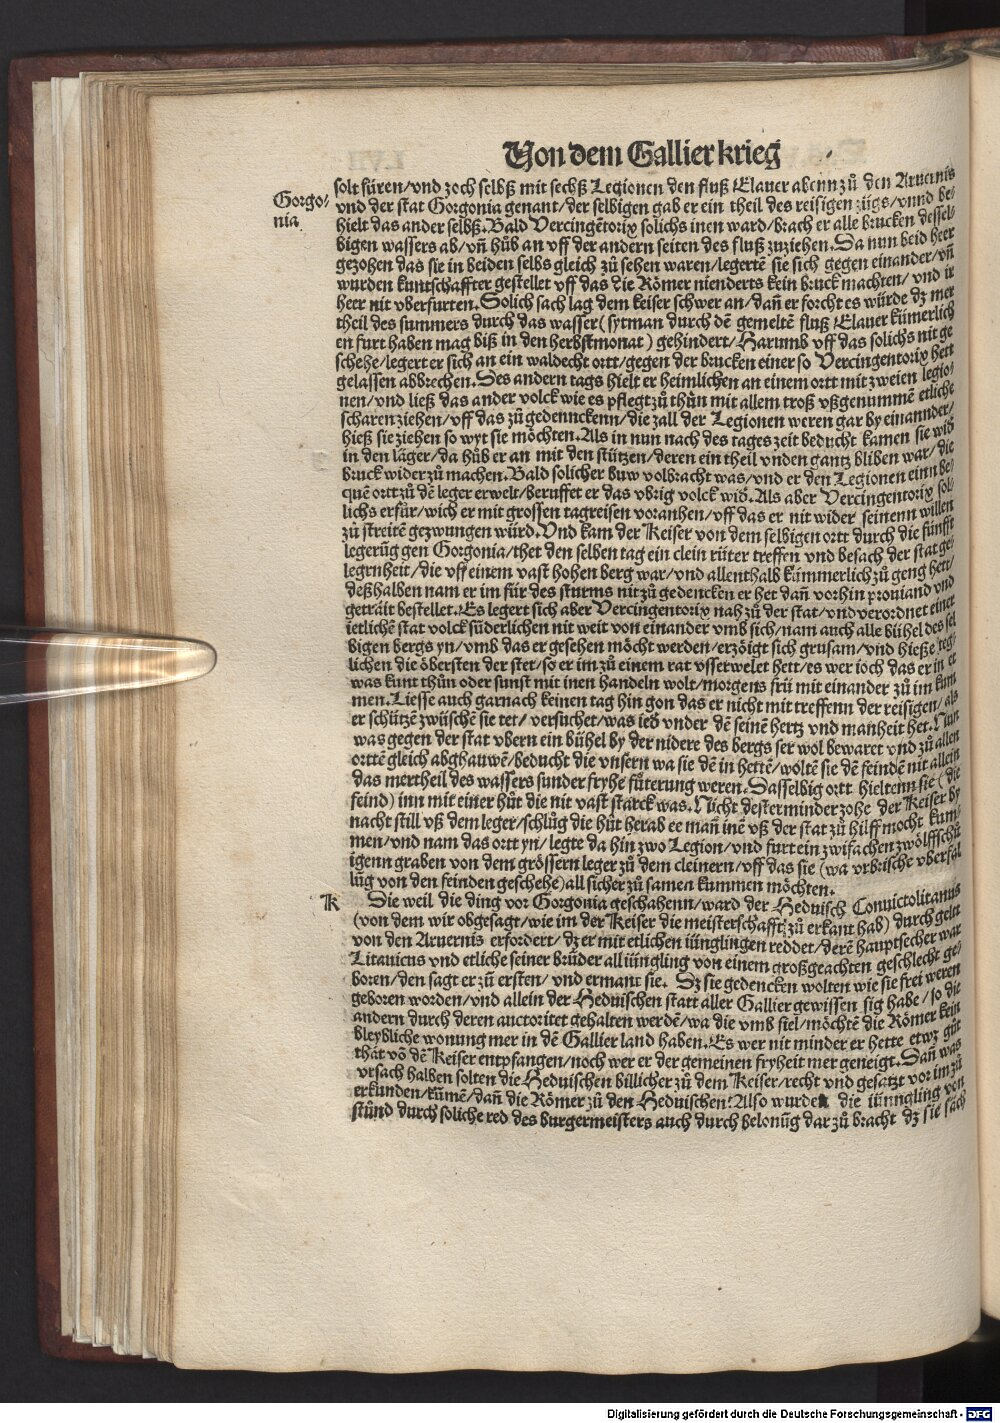 Von dem Gallier krieg
Gorgo⸗
nia
solt füren/vnd zoch selbß mit sechß Legionen den fluß Elauer abenn zů den Aruernis
vnd der stat Gorgonia genant/der selbigen gab er ein theil des reisigen zügs/vnnd be⸗
hielt das ander selbß. Bald Vercingētorix solichs inen ward/brach er alle brucken dessel⸗
bigen wassers ab/vñ hůb an vff der andern seiten des fluß zuziehen. Da nun beid heer
gezohen das sie in beiden selbs gleich zů sehen waren/legertē sie sich gegen einander/vñ
wurden kuntschaffter gestellet vff das die Römer nienderts kein bruck machten/ vnd ir
heer nit vberfurten. Solich sach lag dem keiser schwer an/dañ er forcht es würde dz mer
theil des summers durch das wasser (sytman durch dē gemeltē fluß Elauer kümerlich
en furt haben mag biß in den herbstmonat) gehindert/Harumb vff das solichs nit ge
schehe/legert er sich an ein waldecht ortt/gegen der brucken einer so Vercingentorix hett
gelassen abbrechen. Des andern tags hielt er heimlichen an einem ortt mit zweien legio⸗
nen/vnd ließ das ander volck wie es pflegt zů thůn mit allem troß vßgenummē etliche
scharen ziehen/vff das zů gedenckenn/die zall der Legionen weren gar by einannder/
hieß sie ziehen so wyt sie möchten. Als in nun nach des tages zeit beducht kamen sie wid̄
in den läger/da hůb er an mit den stützen/deren ein theil vnden gantz bliben war/die
bruck wider zů machen. Bald solicher buw volbracht was/vnd er den Legionen einn be⸗
quē ortt zů dē leger erwelt/beruffet er das vbrig volck wid̄. Als aber Vercingentorix sol⸗
lichs erfůr/wich er mit grossen tagreisen voranhen/vff das er nit wider seinenn willen
zů streitē gezwungen würd. Vnd kam der Keiser von dem selbigen ortt durch die fünfft
legerūg gen Gorgonia/thet den selben tag ein clein rüter treffen vnd besach der stat ge⸗
legrnheit/die vff einem vast hohen berg war/vnd allenthalb kümmerlich zů geng hett/
deßhalben nam er im für des sturms nit zů gedencken er het dañ vorhin prouiand vnd
geträit bestellet. Es legert sich aber Vercingentorix nah zů der stat/vnd verordnet einer
ietlichē stat volck sünderlichen nit weit von einander vmb sich/nam auch alle bühel des sel
bigen bergs yn/vmb das er gesehen möcht werden/erzöigt sich grusam/vnd hieße teg⸗
lichen die öbersten der stet/so er im zů einem rat vsserwelet hett/es wer ioch das er in et
was kunt thůn oder sunst mit inen handeln wolt/morgens frü mit einander zů im kum
men. Liesse auch garnach keinen tag hin gon das er nicht mit treffenn der reisigen/als
er schützē zwüschē sie tet/ versuchet/was ied̄ vnder dē seinē hertz vnd manheit het. Nun
was gegen der stat vbern ein bühel by der nidere des bergs ser wol bewaret vnd zů allen
orttē gleich abghauwē/beducht die vnsern wa sie dē in hettē/woltē sie dē feindē nit allein
das mertheil des wassers sunder fryhe fůterung weren. Dasselbig ortt hieltenn sie (die
feind) inn mit einer hůt die nit vast starck was. Nicht desterminder zohe der Keiser by
nacht still vß dem leger/schlůg die hůt herab ee mañ inē vß der stat zů hilff mocht kum⸗
men/vnd nam das ort yn/legte da hin zwo Legion/vnd furt ein zwifachen zwölffschů
igenn graben von dem grössern leger zů dem cleinern/vff das sie (wa vrbrische vberfal
lůg von den feinden geschehe) all sicher zů samen kummen möchten.
K Die weil die ding vor Gorgonia geschahenn/ward der Heduisch Conuictolitanus
(von dem wir obgesagt/wie im der Keiser die meisterschafft zů erkant hab) durch gelt
von den Aruernis erfordert/dz er mit etlichen iünglingen reddet/derē hauptsecher war
Litanicus vnd etliche seiner brüder all iüngling von einem großgeachten geschlecht ge⸗
boren/den sagt er zů ersten/vnd ermant sie. Dz sie gedencken wolten wie sie frei weren
geboren worden/vnd allein der Heduischen statt aller Gallier gewissen sig habe/so die
andern durch deren auctoritet gehalten werdē/wa die vmb fiel/möchtē die Römer kein
bleybliche wonung mer in dē Gallier land haben. Es wer nit minder er hette etwz gůt
that vō dē Keiser entpfangen/noch wer er der gemeinen fryheit mer geneigt. Dañ was
vrsach halben solten die Heduischen billicher zů dem Keiser/recht vnd gesatzt vor im zů
erkunden/kūmē/dañ die Römer zů den Heduischen: Also wurden die iünngling von
stůnd durch soliche red des burgermeisters auch durch belonūg dar zů bracht dz sie sach
Digitalisierung gefördert durch die Deutsche Forschungsgemeinschaft - DFG